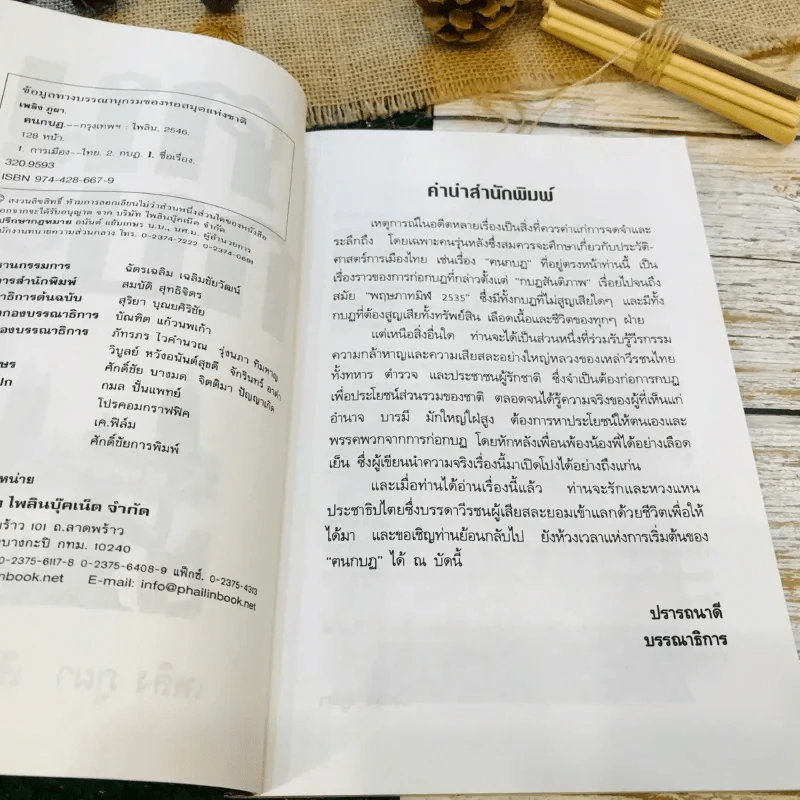 ข้อมูลทางบรรณานุกรมของหอสมุดแห่งชาติ
เพลิง ภูผา.
คนกบฏ.--กรุงเทพฯ : ไพลิน, 2546.
128 หน้า.
1. การเมือง--ไทย. 2. กบฏ. I. ชื่อเรื่อง.
320.9593
ISBN 974-428-667-9
สงวนลิขสิทธิ์ ห้ามการลอกเลียนไม่ว่าส่วนหนึ่งส่วนใดของหนังสือ
นอกจากจะได้รับอนุญาต จาก บริษัท ไพลินบุ๊คเน็ต จำกัด
ปรึกษากฎหมาย อนันต์ แย้มเกษร น.บ., นศ.ม. ผู้อำนวยการ
สำนักงานทนายความส่วนกลาง โทร. 0-2374-7222 0-2374-0691
านกรรมการ ฉัตรเฉลิม เฉลิมชัยวัฒน์
การสำนักพิมพ์ สมบัติ สุทธิจิตร
าธิการต้นฉบับ สุริยา บุณยศิริชัย
กองบรรณาธิการ บัณฑิต แก้วนพเก้า
กองบรรณาธิการ ภัทรภร ไวคำนวณ รุ่งนภา ทิมหาญ
วิบูลย์ หวังอนันต์สุขดี จักรินทร์
ษร ศักดิ์ชัย บางมด จิตติมา ปัญญาเกิด
ปก กมล ปั้นแพทย์
โปรคอมกราฟฟิค
เค.ฟิล์ม
ศักดิ์ชัยการพิมพ์
หน่าย
ไพลินบุ๊คเน็ต จำกัด
พร้าว 101 ถ.ลาดพร้าว
บางกะปิ กทม. 10240
0-2375-6117-8 0-2375-6408-9 แฟ็กซ์. 0-2375-4313
inbook.net E-mail: info@phailinbook.net
คำนำสำนักพิมพ์
เหตุการณ์ในอดีตหลายเรื่องเป็นสิ่งที่ควรค่าแก่การจดจำและ
ระลึกถึง โดยเฉพาะคนรุ่นหลังซึ่งสมควรจะศึกษาเกี่ยวกับประวัติ-
ศาสตร์การเมืองไทย เช่นเรื่อง "คนกบฏ" ที่อยู่ตรงหน้าท่านนี้ เป็น
เรื่องราวของการก่อกบฏที่กล่าวตั้งแต่ "กบฏสันติภาพ" เรื่อยไปจนถึง
สมัย "พฤษภาทมิฬ 2535" ซึ่งมีทั้งกบฏที่ไม่สูญเสียใดๆ และมีทั้ง
กบฏที่ต้องสูญเสียทั้งทรัพย์สิน เลือดเนื้อและชีวิตของทุกๆ ฝ่าย
แต่เหนือสิ่งอื่นใด ท่านจะได้เป็นส่วนหนึ่งที่ร่วมรับรู้วีรกรรม
ความกล้าหาญและความเสียสละอย่างใหญ่หลวงของเหล่าวีรชนไทย
ทั้งทหาร ตำรวจ และประชาชนผู้รักชาติ ซึ่งจำเป็นต้องก่อการกบฏ
เพื่อประโยชน์ส่วนรวมของชาติ ตลอดจนได้รู้ความจริงของผู้ที่เห็นแก่
อำนาจ บารมี มักใหญ่ใฝ่สูง ต้องการหาประโยชน์ให้ตนเองและ
พรรคพวกจากการก่อกบฏ โดยหักหลังเพื่อนพ้องน้องพี่ได้อย่างเลือด
เย็น ซึ่งผู้เขียนนำความจริงเรื่องนี้มาเปิดโปงได้อย่างถึงแก่น
และเมื่อท่านได้อ่านเรื่องนี้แล้ว ท่านจะรักและหวงแหน
ประชาธิปไตยซึ่งบรรดาวีรชนผู้เสียสละยอมเข้าแลกด้วยชีวิตเพื่อให้
ได้มา และขอเชิญท่านย้อนกลับไป ยังห้วงเวลาแห่งการเริ่มต้นของ
"คนกบฏ" ได้ ณ บัดนี้
ปรารถนาดี
บรรณาธิการ